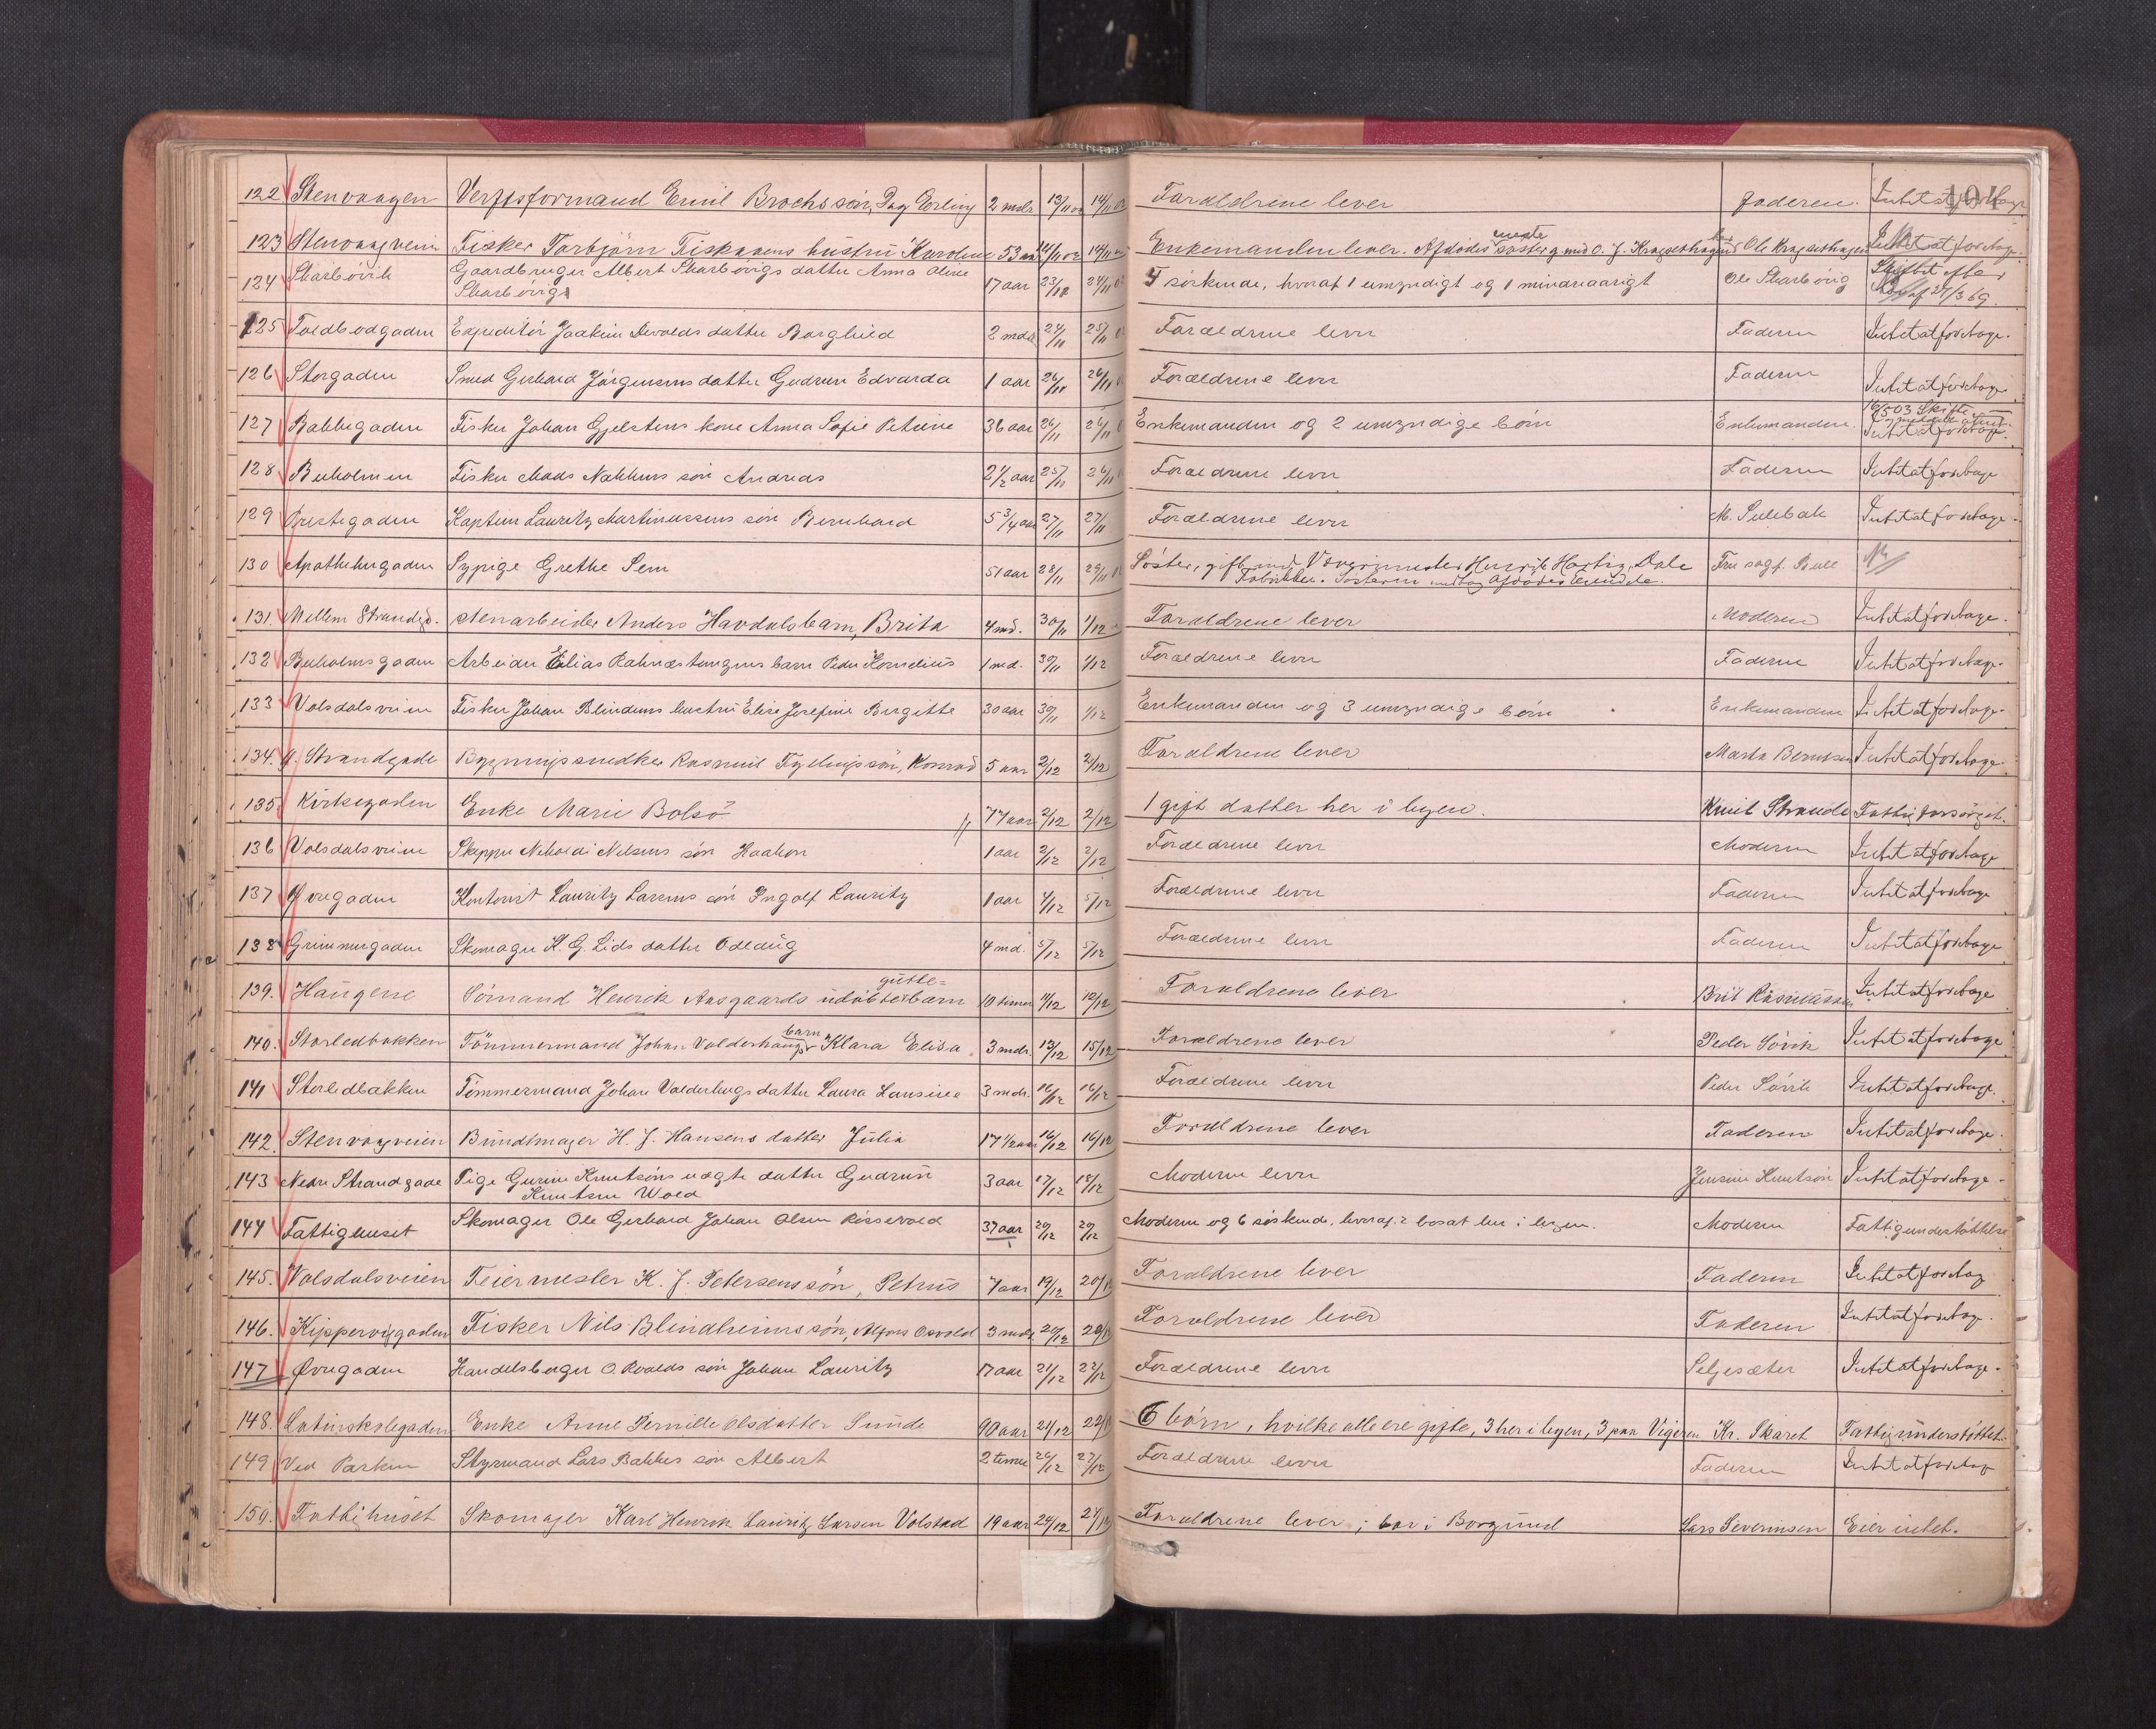 104
122 Stenvaagen Verftsformand Emil Brochs søn, Dag Erling 2 mdr 13/11 02 14/11 02 Forældrene lever Faderen. Intet at foretage
123 Stenvaagveien Fisker Torbjørn Fiskaaens hustru Karoline 53 aar 11/11 02 14/11 02 Enkemanden lever. Afdødes eneste søster g. med O. J. Kragsethagen Ole Kragsethagen Intet at foretage
124 Skarbøvik Gaardbruger Albert Skarbøvigs datter Anna Oline 17 aar 23/11 24/11 02 4 søskende, hvoraf 1 umyndigt og 1 mindreaarigt Ole Skarbøvig Skiftet efter
Skarbøvig 27/3 69
125 Toldbodgaden Expeditør Joakim Devolds datter Borghild 2 mdr 24/11 25/11 02 Forældrene lever Faderen Intet at foretage.
126 Storgaden Smed Gerhard Jørgensens datter Gudrun Edvarda 1 aar 26/11 26/11 02 Forældrene lever Faderen Intet at foretage
127 Bakkegaden Fisker Johan Gjelstens kone Anna Sofie Petrine 36 aar 24/11 26/11 Enkemanden og 2 umyndige børn Enkemanden. 16/5 03 Skifte
Intet at foretage.
128 Buholmen Fisker Mads Nakkens søn Andreas 2 1/2 aar 25/11 26/11 Forældrene lever Faderen Intet at foretage
129 Præstegaden Kaptein Lauritz Martinussens søn Bernhard 5 3/4 aar 27/11 27/11 Forældrene lever M. Sulebak Intet at foretage.
130 Apothekergaden Sypige Grethe Sem 51 aar 28/11 29/11 02 Søster, gift med Væverimester Henrik Hartvig, Dale Fru sagf. Bull
Fabrikker. Søsteren modtog afdødes eiendele.
131. Mellem Strandgd. Stenarbeider Anders Havdals barn, Brita 4 md. 30/11 1/12 Forældrene lever Moderen Intet at foretage.
132 Buholmsgaden Arbeider Elias Rahnæstangens barn Peder Kornelius 1 md. 30/11 1/12 Forældrene lever Faderen Intet at foretage.
133 Volsdalsveien Fisker Johan Blindems hustru Elise Josefine Birgitte 30 aar 30/11 1/12 Enkemanden og 3 umyndige børn Enkemanden Intet at foretage.
134. N. Strandgade Bygningssnedker Rasmus Fyllings søn, Konrad 5 aar 2/12 2/12 Forældrene lever Marta Berntsen Intet at foretage.
135. Kirkegaden Enke Marie Bolsø 77 aar 2/12 2/12 1 gift datter her i byen. Knut Strande Fattigforsørget.
136 Volsdalsveien Skipper Nikolai Nilsens søn Haakon 1 aar 2/12 2/12 Forældrene lever Moderen Intet at foretage
137 Øvregaden Kontorist Lauritz Larsens søn Ingolf Lauritz 1 aar 4/12 5/12 Forældrene lever Faderen Intet at foretage
138 Grimmergaden Skomager K. G. Lids datter Oddlaug 4 md. 5/12 5/12 Forældrene lever Faderen Intet at foretage
139. Haugene Sømand Henrik Aasgaards udøbte guttebarn 10 timer 9/12 10/12 Forældrene lever Brit Rasmussen Intet at foretage
140. Storledbakken Tømmermand Johan Valderhaugs barn Klara Elisa 3 mdr. 13/12 15/12 Forældrene lever Peder Søvik Intet at foretage
141 Storledbakken Tømmermand Johan Valderhugs datter Laura Hansine 3 mdr. 16/12 16/12 Forældrene lever Peder Søvik Intet at foretage.
142. Stenvagveien Bundtmager H. J. Hansens datter Julia 17 1/2 aar 16/12 16/12 Forældrene lever Faderen Intet at foretage.
143 Nedre Strandgade Pige Gurine Knutsøns uægte datter Gudrun 3 aar 17/12 18/12 Moderen lever Jensine Knutsøn Intet at foretage.
Knutsen Wold
144 Fattighuset Skomager Ole Gerhard Johan Olsen Rossevold 37 aar 20/12 20/12 Moderen og 6 søskende, hvoraf 2 bosat her i byen. Moderen Fattigunderstøttelse
145. Volsdalsveien Feiermester K. J. Petersens søn, Petrus 7 aar 19/12 20/12 Forældrene lever Faderen Intet at foretag
146. Kippervigaden Fisker Nils Blindheims søn, Alfons Osvald 3 mdr 20/12 20/12 Forældrene lever Faderen Intet at foretage.
147 Øvregaden Handelsborger O. Roalds søn Johan Lauritz 17 aar 21/12 22/12 Forældrene lever Seljesæter Intet at foretage.
148. Latinskolegaden Enke Anne Pernille Olsdatter Sunde 90 aar 21/12 22/12 6 børn, hvilke alle ere gifte, 3 her i byen, 3 paa Vigeren Kr. Skaret Fattigunderstøttet.
149 Ved Parken Styrmand Lars Bakkes søn Albert 2 timer 26/12 27/12 Forældrene lever Faderen Intet at foretage
150. Fattighuset Skomager Karl Henrik Lauritz Larsen Volstad 19 aar 24/12 27/12 Forældrene lever; bor i Borgund Lars Severinsen Eier intet.